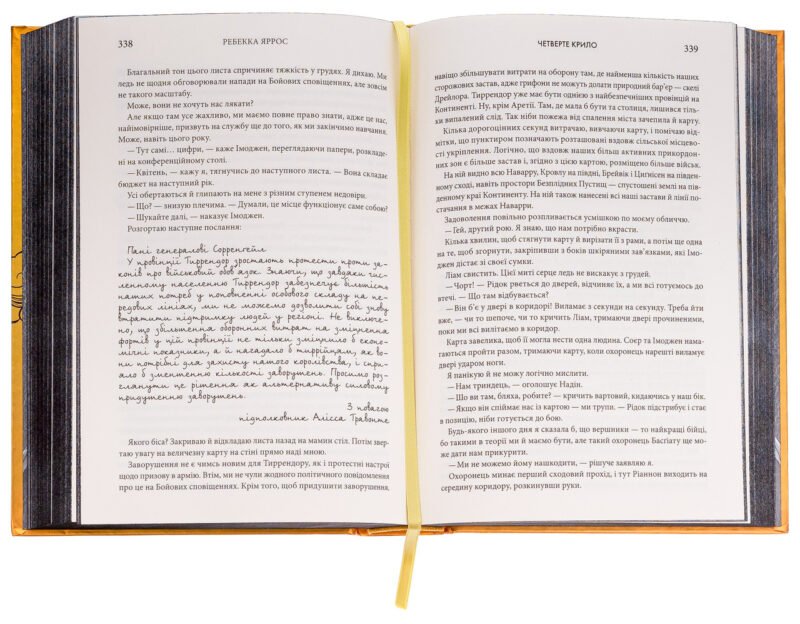 338
РЕБЕККА ЯРРОС
Благальний тон цього листа спричиняє тяжкість у грудях. Я дихаю. Ми
ледь не щодня обговорювали напади на Бойових сповіщеннях, але зовсім
не такого масштабу.
Може, вони не хочуть нас лякати?
Але якщо там усе жахливо, ми маємо повне право знати, адже це нас,
найімовірніше, призвуть на службу ще до того, як ми закінчимо навчання.
Може, навіть цього року.
— Тут самі… цифри, — каже Імоджен, переглядаючи папери, розкладе-
ні на конференційному столі.
— Квітень, — кажу я, тягнучись до наступного листа. — Вона складає
бюджет на наступний рік.
Усі обертаються й глипають на мене з різним ступенем недовіри.
— Що? — знизую плечима. — Думали, це місце функціонує саме собою?
— Шукайте далі, — наказує Імоджен.
Розгортаю наступне послання:
Пані генералові Сорренґейл
У провінції Тиррендор зростають протести проти за-
конів про військовий обов'язок. Знаючи, що завдяки чис-
ленному населенню Тиррендор забезпечує більшість
наших потреб у поповненні особового складу на пе-
редових лініях, ми не можемо дозволити собі знову
втратити підтримку людей у регіоні. Не виключе-
но, що збільшення оборонних витрат на зміцнення
фортів у цій провінції не тільки зміцнило б еконо-
мічні показники, а й нагадало б тиррійцям, як во-
ни потрібні для захисту нашого королівства, і спри-
яло б зменшенню кількості заворушень. Просимо роз-
глянути це рішення як альтернативу силовому
придушенню заворушень.
З повагою
підполковник Алісса Травонте
Якого біса? Закриваю й відкладаю листа назад на мамин стіл. Потім звер-
таю увагу на величезну карту на стіні прямо наді мною.
Заворушення не є чимсь новим для Тиррендору, як і протестні настрої
щодо призову в армію. Втім, ми не чули жодного політичного повідомлення
про це на Бойових сповіщеннях. Крім того, щоб придушити заворушення,
ЧЕТВЕРТЕ КРИЛО
339
навіщо збільшувати витрати на оборону там, де найменша кількість наших
сторожових застав, адже грифони не можуть долати природний бар'єр — скелі
Дрейлора. Тиррендор уже має бути однією з найбезпечніших провінцій на
Континенті. Ну, крім Аретії. Там, де мала б бути та столиця, лишився тіль-
ки випалений слід. Так ніби пожежа від спалення міста зачепила й карту.
Кілька дорогоцінних секунд витрачаю, вивчаючи карту, і помічаю від-
мітки, що пунктиром позначають розташовані вздовж сільської місцево-
сті укріплення. Логічно, що вздовж наших більш активних прикордон-
них зон є більше застав і, згідно з цією картою, розміщено більше військ.
На ній видно всю Наварру, Кровлу на півдні, Брейвік і Цигнісен на пів-
денному сході, навіть простори Безплідних Пустищ — спустошені землі на пів-
денному краї Континенту. На ній також нанесені всі наші застави й лінії по-
стачання в межах Наварри.
Задоволення повільно розпливається усмішкою по моєму обличчю.
— Гей, другий рою. Я знаю, що нам потрібно вкрасти.
Кілька хвилин, щоб стягнути карту й вирізати її з рами, а потім ще одна
на те, щоб згорнути, закріпивши з боків шкіряними зав'язками, які Імо-
джен дістає зі своєї сумки.
Ліам свистить. Цієї миті серце ледь не вискакує з грудей.
— Чорт! — Рідок рветься до дверей, відчиняє їх, а ми всі готуємось до
втечі. — Що там відбувається?
— Він б'є у двері в коридорі! Виламає з секунди на секунду. Треба йти
вже, — чи то шепоче, чи то кричить Ліам, тримаючи двері прочиненими,
поки ми всі вилітаємо в коридор.
Карта завелика, щоб її могла нести одна людина. Соєр та Імоджен нама-
гаються пройти разом, тримаючи карту, коли охоронець нарешті виламує
двері ударом ноги.
Я панікую й не можу логічно мислити.
— Нам триндець, — оголошує Надін.
— Що ви там, бляха, робите? — кричить вартовий, кидаючись у наш бік.
— Якщо він спіймає нас із картою — ми трупи. — Рідок підстрибує і стає
в позицію, ніби готується до бою.
Будь-якого іншого дня я сказала б, що вершники — то найкращі бійці,
бо такими в теорії ми й маємо бути, але такий охоронець Басґіату ще мо-
же дати нам прикурити.
— Ми не можемо йому нашкодити, — рішуче заявляю я.
Охоронець минає перший сходовий прохід, і тут Ріаннон виходить на
середину коридору, розкинувши руки.